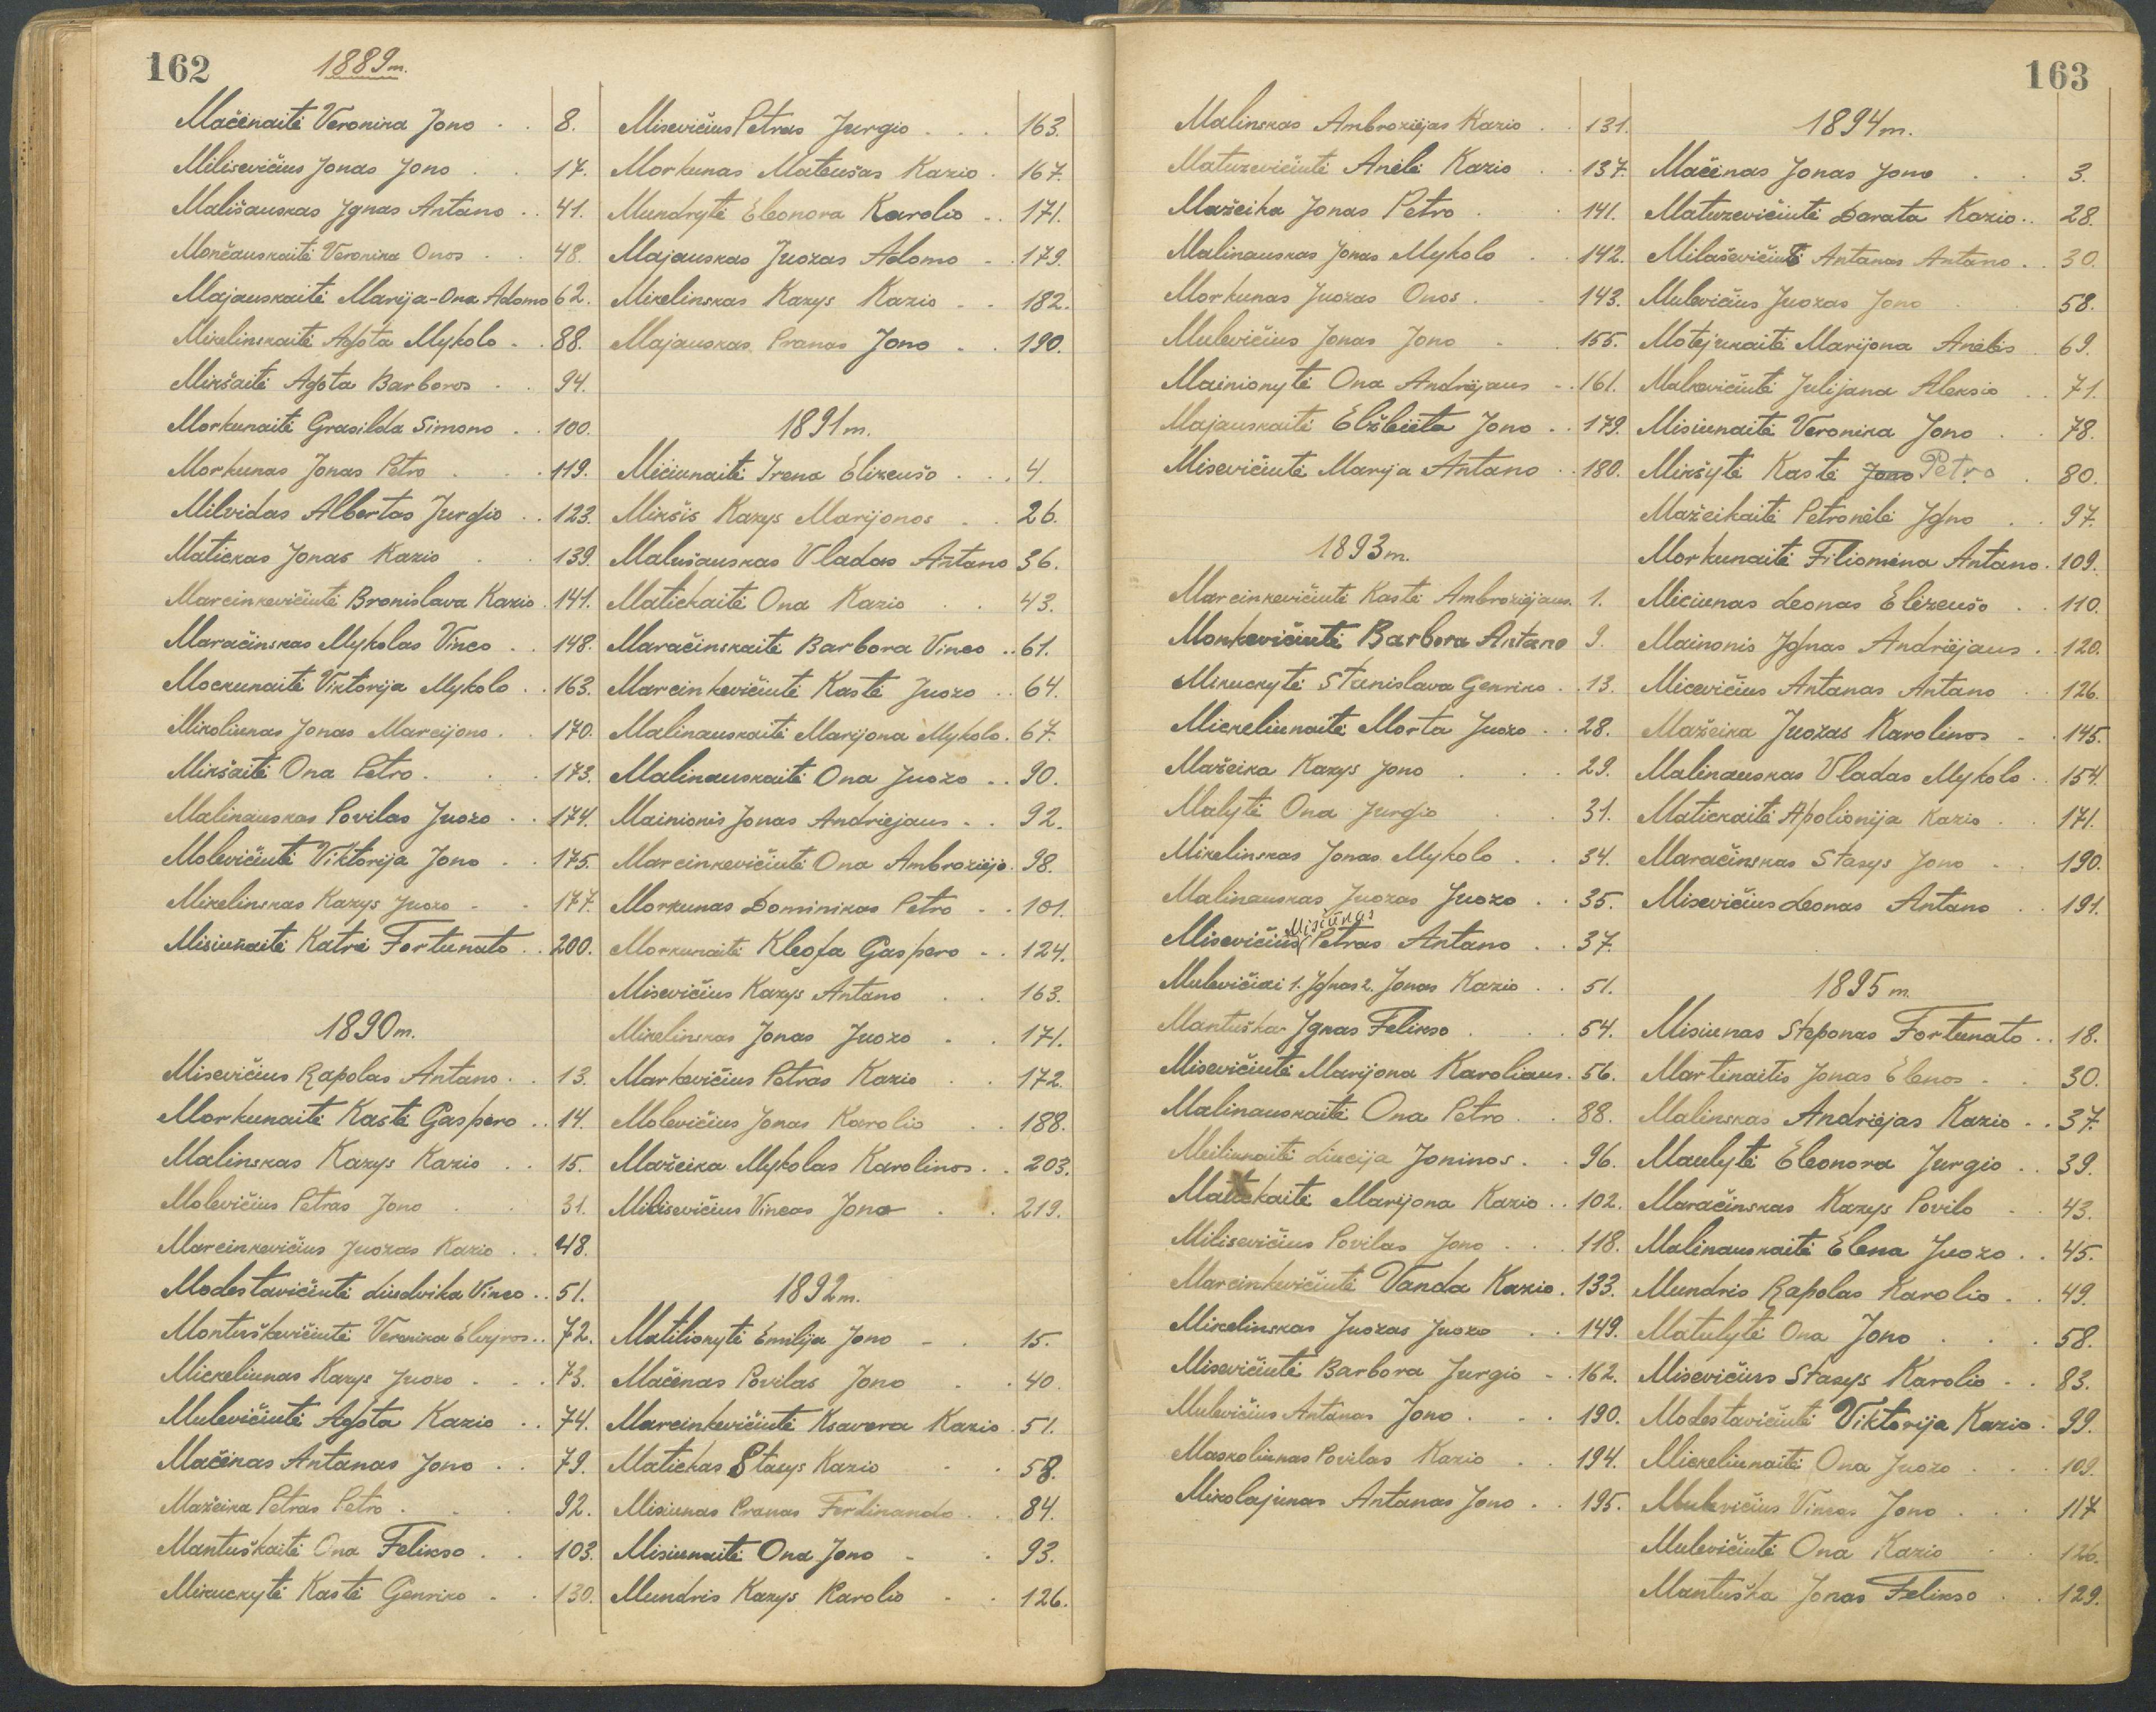 162
1889m.
Mačėnaitė Veronika Jono . . 8.
Milisevičius Jonas Jono . . 17.
Mališauskas Ignas Antano . . 41.
Mončauskaitė Veronika Onos . . 48.
Majauskaitė Marija-Ona Adomo 62.
Mikelinskaitė Agota Mykolo . . 88.
Mikšaitė Agota Barboros . . 94.
Morkunaitė Grasilda Simono . . 100.
Morkunas Jonas Petro . . . 119.
Milvidas Albertas Jurgio . . 123.
Matickas Jonas Kazio . . 139.
Marcinkevičiutė Bronislava Kazio . 141.
Maračinskas Mykolas Vinco . . 148.
Mockunaitė Viktorija Mykolo . . 163.
Mikoliunas Jonas Marcijono . . 170.
Mikšaitė Ona Petro . . . 173.
Malinauskas Povilas Juozo . . 174.
Molevičiutė Viktorija Jono . . 175.
Mikelinskas Kazys Juozo - - 177.
Misiunaitė Katrė Fortunato . . 200.
1890m.
Misevičius Rapolas Antano . . 13.
Morkunaitė Kastė Gaspero . . 14.
Malinskas Kazys Kazio . . 15.
Molevičius Petras Jono . . 31.
Marcinkevičius Juozas Kazio . . 48.
Modestavičiutė Liudvika Vinco . . 51.
Montuškevičiutė Veronika Elzyros . . 72.
Mickeliunas Kazys Juozo . . . 73.
Mulevičiutė Agota Kazio . . 74.
Mačėnas Antanas Jono . . 79.
Mažeika Petras Petro . . . 92.
Mantuškaitė Ona Felikso . . 103.
Mikuckytė Kastė Genriko - . 130.
Misevičius Petras Jurgio . . . 163.
Morkunas Mateušas Kazio . 167.
Mundrytė Eleonora Karolio . . 171.
Majauskas Juozas Adomo . . 179.
Mikelinskas Kazys Kazio . . 182.
Majauskas Pranas Jono . . 190.
1891m.
Miciunaitė Irena Elizeušo . . . 4.
Mikšis Kazys Marijonos . . 26.
Malušauskas Vladas Antano 36.
Matickaitė Ona Kazio . . 43.
Maračinskaitė Barbora Vinco . . 61.
Marcinkevičiutė Kastė Juozo . . 64.
Malinauskaitė Marijona Mykolo . 67.
Malinauskaitė Ona Juozo . . 90.
Mainionis Jonas Andriejaus . . 92.
Marcinkevičiutė Ona Ambroziejo . 98.
Morkunas Dominikas Petro . . 101.
Morkunaitė Kleofa Gaspero . . 124.
Misevičius Kazys Antano . . 163.
Mikelinskas Jonas Juozo . . 171.
Markevičius Petras Kazio . . 172.
Molevičius Jonas Karolio . . 188.
Mažeika Mykolas Karolinos . . 203.
Milisevičius Vincas Jono . . 219.
1892m.
Matilionytė Emilija Jono - . 15.
Mačėnas Povilas Jono . . 40.
Marcinkevičiutė Ksavera Kazio . 51.
Matickas Stasys Kazio - . 58.
Misiunas Pranas Ferdinando . . 84.
Misiunaitė Ona Jono - . 93.
Mundris Kazys Karolio - . 126.
163
Malinskas Ambroziejas Kazio . . 131.
Matuzevičiutė Anėlė Kazio . . 137.
Mažeika Jonas Petro . . 141.
Malinauskas Jonas Mykolo . . 142.
Morkunas Juozas Onos . . 143.
Mulevičius Jonas Jono - . 155.
Mainionytė Ona Andriejaus - . 161.
Majauskaitė Elžbieta Jono . . 179.
Misevičiutė Marija Antano . . 180.
1893m.
Marcinkevičiutė Kastė Ambroziejaus . 1.
Monkevičiutė Barbora Antano 9.
Mikuckytė Stanislava Genriko . . 13.
Mickeliunaitė Morta Juozo . . 28.
Mažeika Kazys Jono . . . 29.
Malytė Ona Jurgio . . 31.
Mikelinskas Jonas Mykolo . . 34.
Malinauskas Juozas Juozo . . 35.
Misiūnas
Misevičius Petras Antano . . 37.
Mulevičiai 1. Ignas 2. Jonas Kazio . . 51.
Mantuška Ignas Felikso . . . 54.
Misevičiutė Marijona Karoliaus . 56.
Malinauskaitė Ona Petro . . 88.
Meiliunaitė Liucija Joninos . . 96.
Matickaitė Marijona Kazio . . 102.
Milisevičius Povilas Jono . . . 118.
Marcinkevičiutė Vanda Kazio . 133.
Mikelinskas Juozas Juozo . . 149.
Misevičiutė Barbora Jurgio - . 162.
Mulevičius Antanas Jono . . . 190.
Maskoliunas Povilas Kazio . . 194.
Mikolajunas Antanas Jono . . 195.
1894m.
Mačėnas Jonas Jono . . 3.
Matuzevičiutė Darata Kazio . . 28.
Milaševičius Antanas Antano . . 30.
Mulevičius Juozas Jono 58.
Motejunaitė Marijona Anėlės . 69.
Malkevičiutė Julijana Alekso . . 71.
Misiunaitė Veronika Jono . . 78.
Mikšytė Kastė Jono Petro . 80.
Mažeikaitė Petronėlė Igno . . 97.
Morkunaitė Filiomėna Antano . 109.
Miciunas Leonas Elizeušo . . 110.
Mainonis Ignas Andriejaus . . 120.
Micevičius Antanas Antano . . 126.
Mažeika Juozas Karolinos - . 145.
Malinauskas Vladas Mykolo . . 154.
Matickaitė Apolionija Kazio . . 171.
Maračinskas Stasys Jono - . 190.
Misevičius Leonas Antano . . 191.
1895m.
Misiunas Steponas Fortunato . . 18.
Martinaitis Jonas Elenos - . 30.
Malinskas Andriejas Kazio . . 37.
Maulytė Eleonora Jurgio . . 39.
Maračinskas Kazys Povilo . . 43.
Malinauskaitė Elena Juozo . . 45.
Mundris Rapolas Karolio . . 49.
Matulytė Ona Jono . . . 58.
Misevičius Stasys Karolio - . 83.
Modestavičiutė Viktorija Kazio . 99.
Mickeliunaitė Ona Juozo . . . 109.
Mulevičius Vincas Jono . . . 117.
Mulevičiutė Ona Kazio . . 126.
Mantuška Jonas Felikso . . 129.